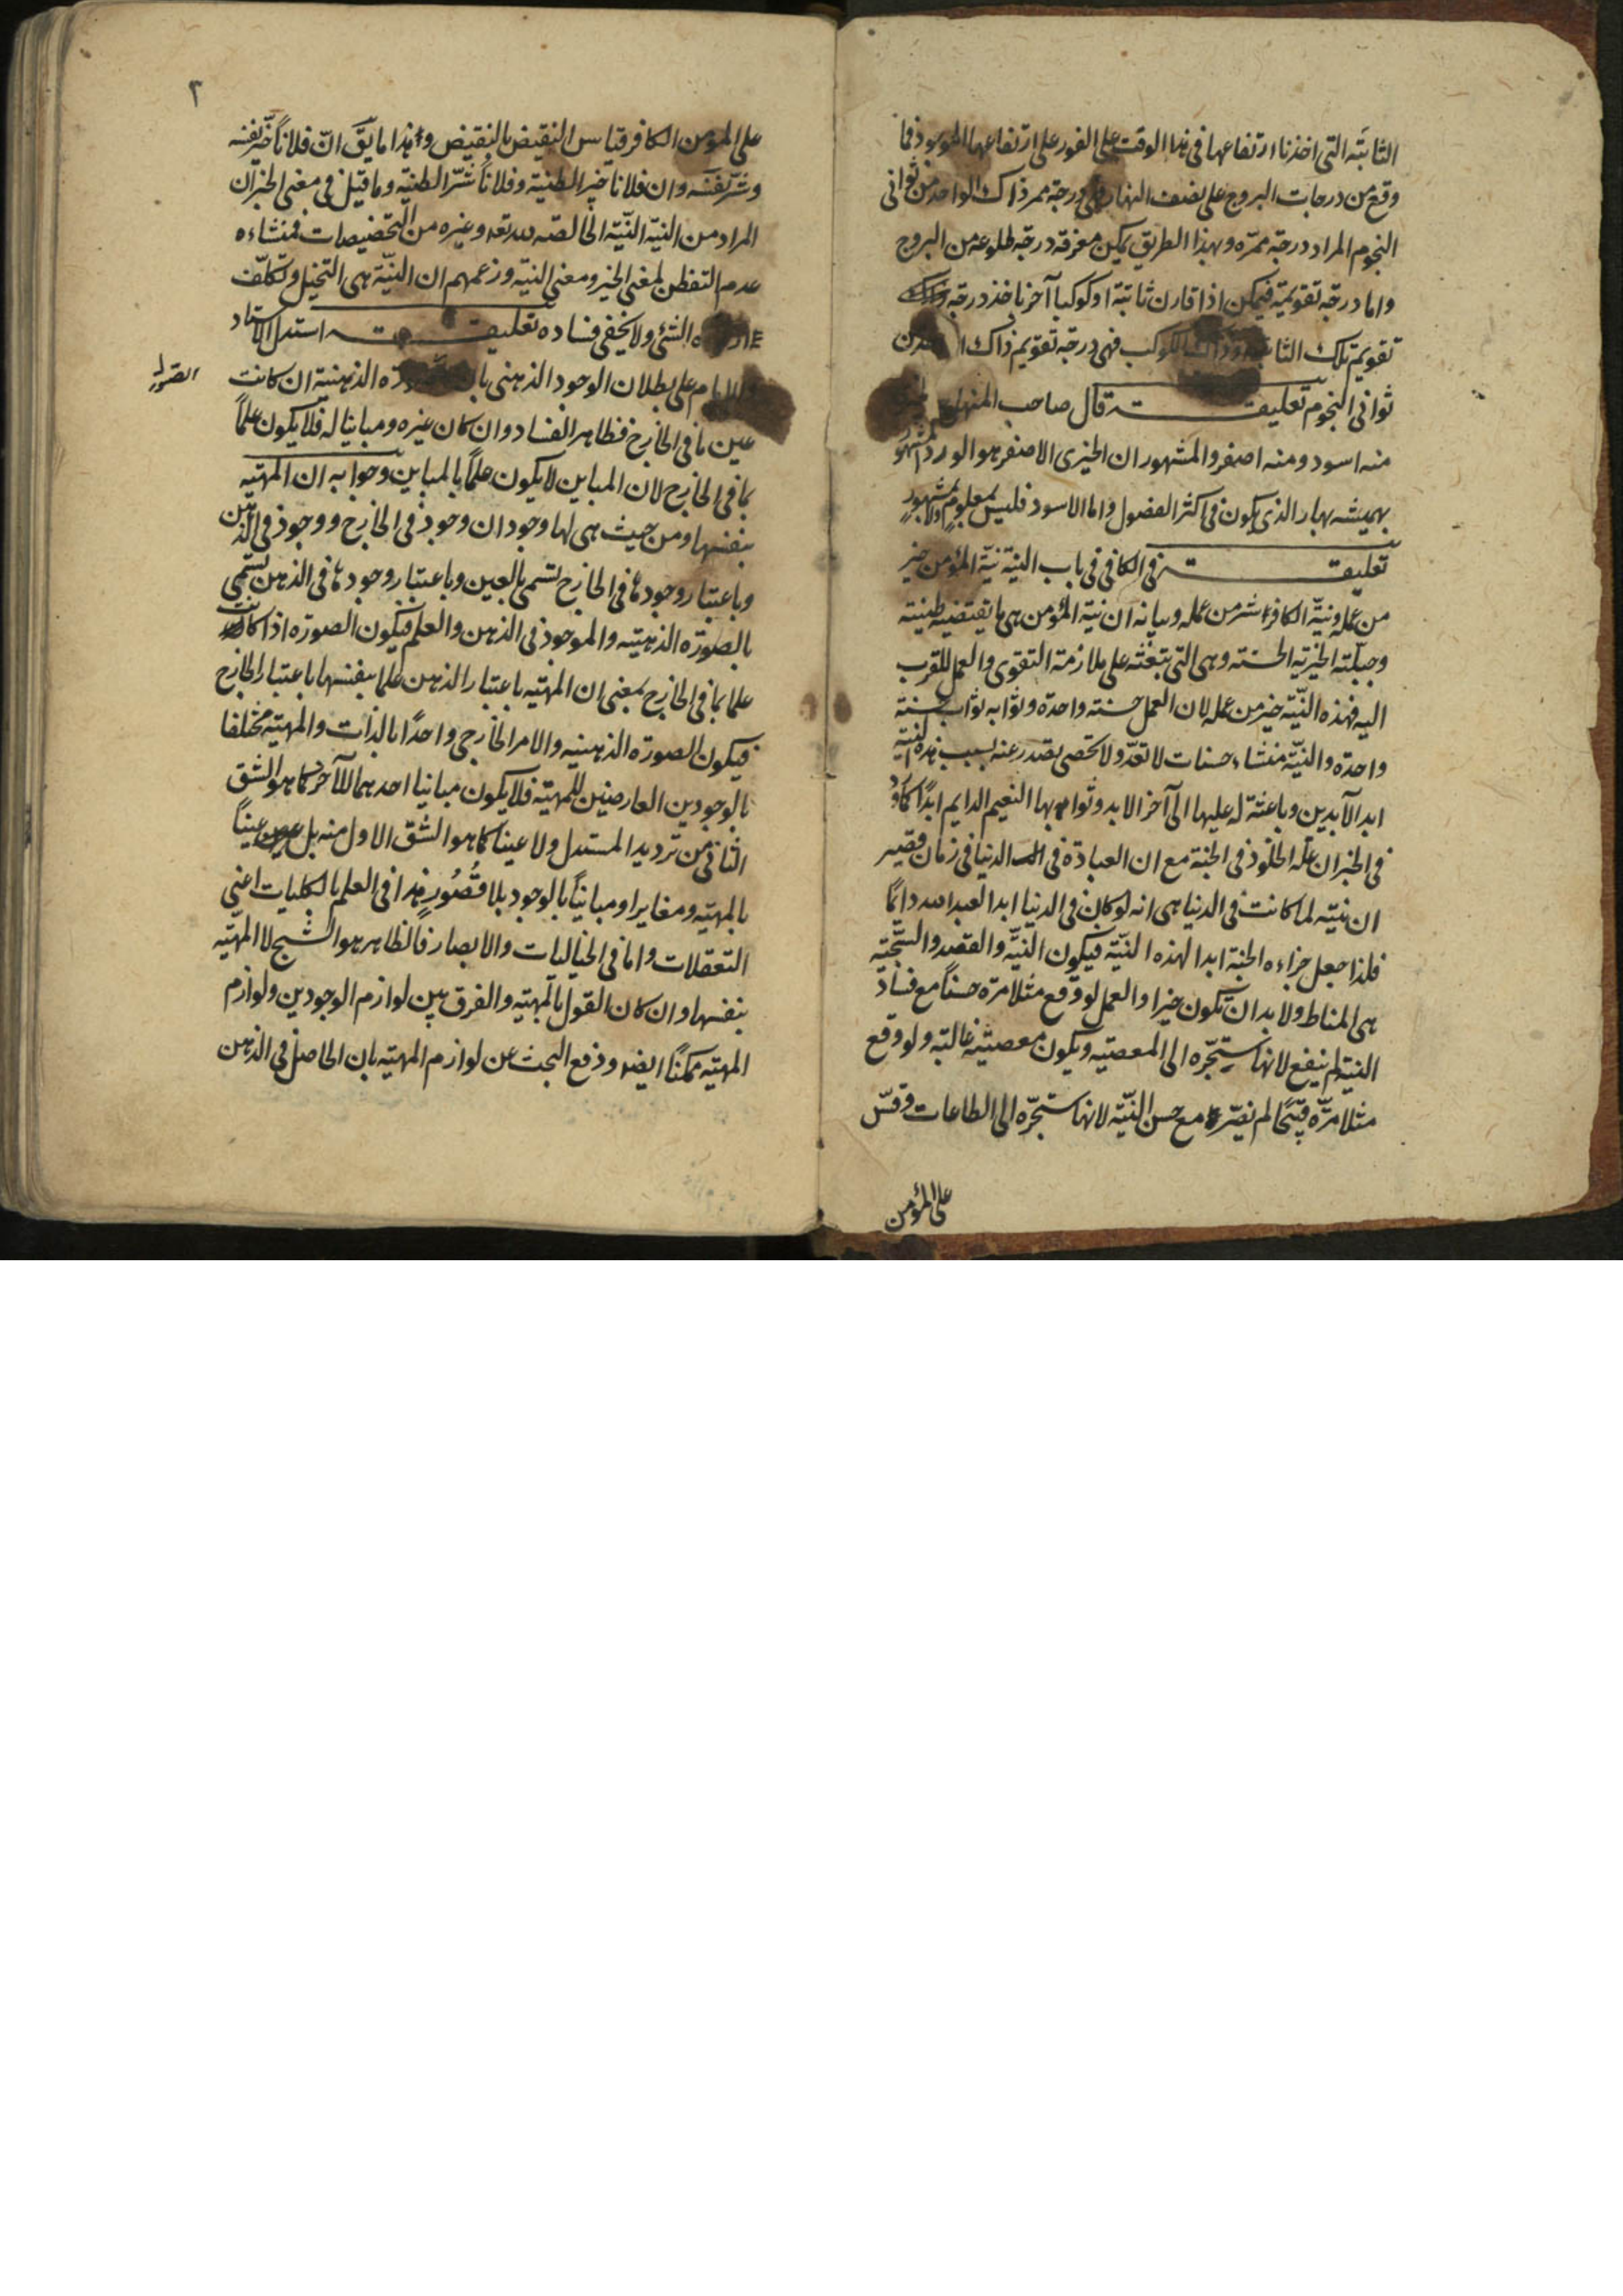 الثابتة التى اخذنا ارتفاعها فى هذا الوقت على الفور على ارتفاعها الموجود فما
وقع من درجات البروج على نصف النهار فهى درجة ممر ذاك الواحد من ثوانى
النجوم المراد درجة ممره وبهذا الطريق يمكن معرفة درجة طلوعه من البروج
واما درجة تقويمة فيمكن اذا قارن ثابتة او كوكبا آخر ناخذ درجة
تقويمة تلك الثابتة الكوكب فهى درجة تقويم ذاك من
ثوانى النجوم تعليقة قال صاحب المنهاج
منه اسود ومنه اصفر والمشهور ان الخيرى الاصفر هو الورد المشهور
بهميشه بهار الذى يكون فى اكثر الفصول واما الاسود فليس بمعلوم ولا بمشهور
تعليقة فى الكافى فى باب النيّة نيّة المؤمن خير
من عمله ونيّة الكافر شر من عمله وبيانه ان نية المؤمن هى ما يقتضيه طينته
وجبلّته الخيرية الحسنة وهى التى تبعثه على ملازمة التقوى والعمل للقرب
اليه فهذه النيّة خير من عمله لان العمل حسنة واحدة وثوابه ثواب حسنة
واحدة والنيّة منشاء حسنات لا تعدّ ولا تحصى يصدر عنه بسبب هذه النية
ابد الآبدين وباعثة له عليها الى آخر الابد وثوابها النعيم الدايم ابدًا كما ورد
فى الخبر ان علّة الخلود فى الجنة مع ان العبادة فى الدنيا فى زمان قصير
ان نيته لما كانت فى الدنيا هى انه لو كان فى الدنيا ابدا لعبد الله دائمًا
فلذا جعل جزاءه الجنة ابدا لهذه النيّة فيكون النيّة والقصد والسجّية
هى المناط ولا بد ان تكون خيرا والعمل لو وقع مثلا مرة حسنًا مع فساد
النية لم ينفع لانها ستجرّه الى المعصية ويكون معصيته غالبة ولو وقع
مثلا مرّة قبيحًا لم يضرّ مع حسن النيّة لانها ستجرّه الى الطاعات وقس
على المؤمن
٢
على المؤمن الكافر قياس النقيض بالنقيض وهذا ما يقّ انّ فلانًا خيّر نفسه
وشرّ نفسه وان فلانا خير الطينة وفلانًا شرّ الطينة وما قيل فى معنى الخبر ان
المراد من النية النيّة الخالصة لله تعه وغيره من التخصيصات فمنشاءه
عدم التفطن لمعنى الخبر ومعنى النية وزعمهم ان النيّة هى التخيل وتكلّف
الشئ ولا يخفى فساده تعليقة استدل الاستاد
الامام على بطلان الوجود الذهنى بان الذهنية ان كانت
الصورة
عين ما فى الخارج فظاهر الفساد وان كان غيره ومباينا له فلا يكون علمًا
بما فى الخارج لان المباين لا يكون علمًا بالمباين وجوابه ان المهية
بنفسها ومن حيث هى لها وجودان وجود فى الخارج ووجود فى الذهن
وباعتبار وجودها فى الخارج تسمى بالعين وباعتبار وجودها فى الذهن تسمى
بالصورة الذهنية والموجود فى الذهن والعلم فيكون الصورة اذا كانت
علما بما فى الخارج بمعنى ان المهية باعتبار الذهن علما بنفسها باعتبار الخارج
فيكون الصورة الذهنية والامر الخارجى واحدًا بالذات والمهية مختلفا
بالوجودين العارضين للمهية فلا يكون مباينا احدهما للآخر كما هو الشق
الثانى من ترديد المستدل ولا عينا كما هو الشق الاول منه بل عينًا
بالمهية ومغايرا ومباينًا بالوجود بلا قصُور هذا فى العلم بالكليات اعنى
التعقلات واما فى الخياليات والابصار فالظاهر هو الشبح لا المهيّة
بنفسها وان كان القول بالمهية والفرق بين لوازم الوجودين ولوازم
المهية ممكنًا ايضا ودفع البحث عن لوازم المهية بان الحاصل فى الذهن